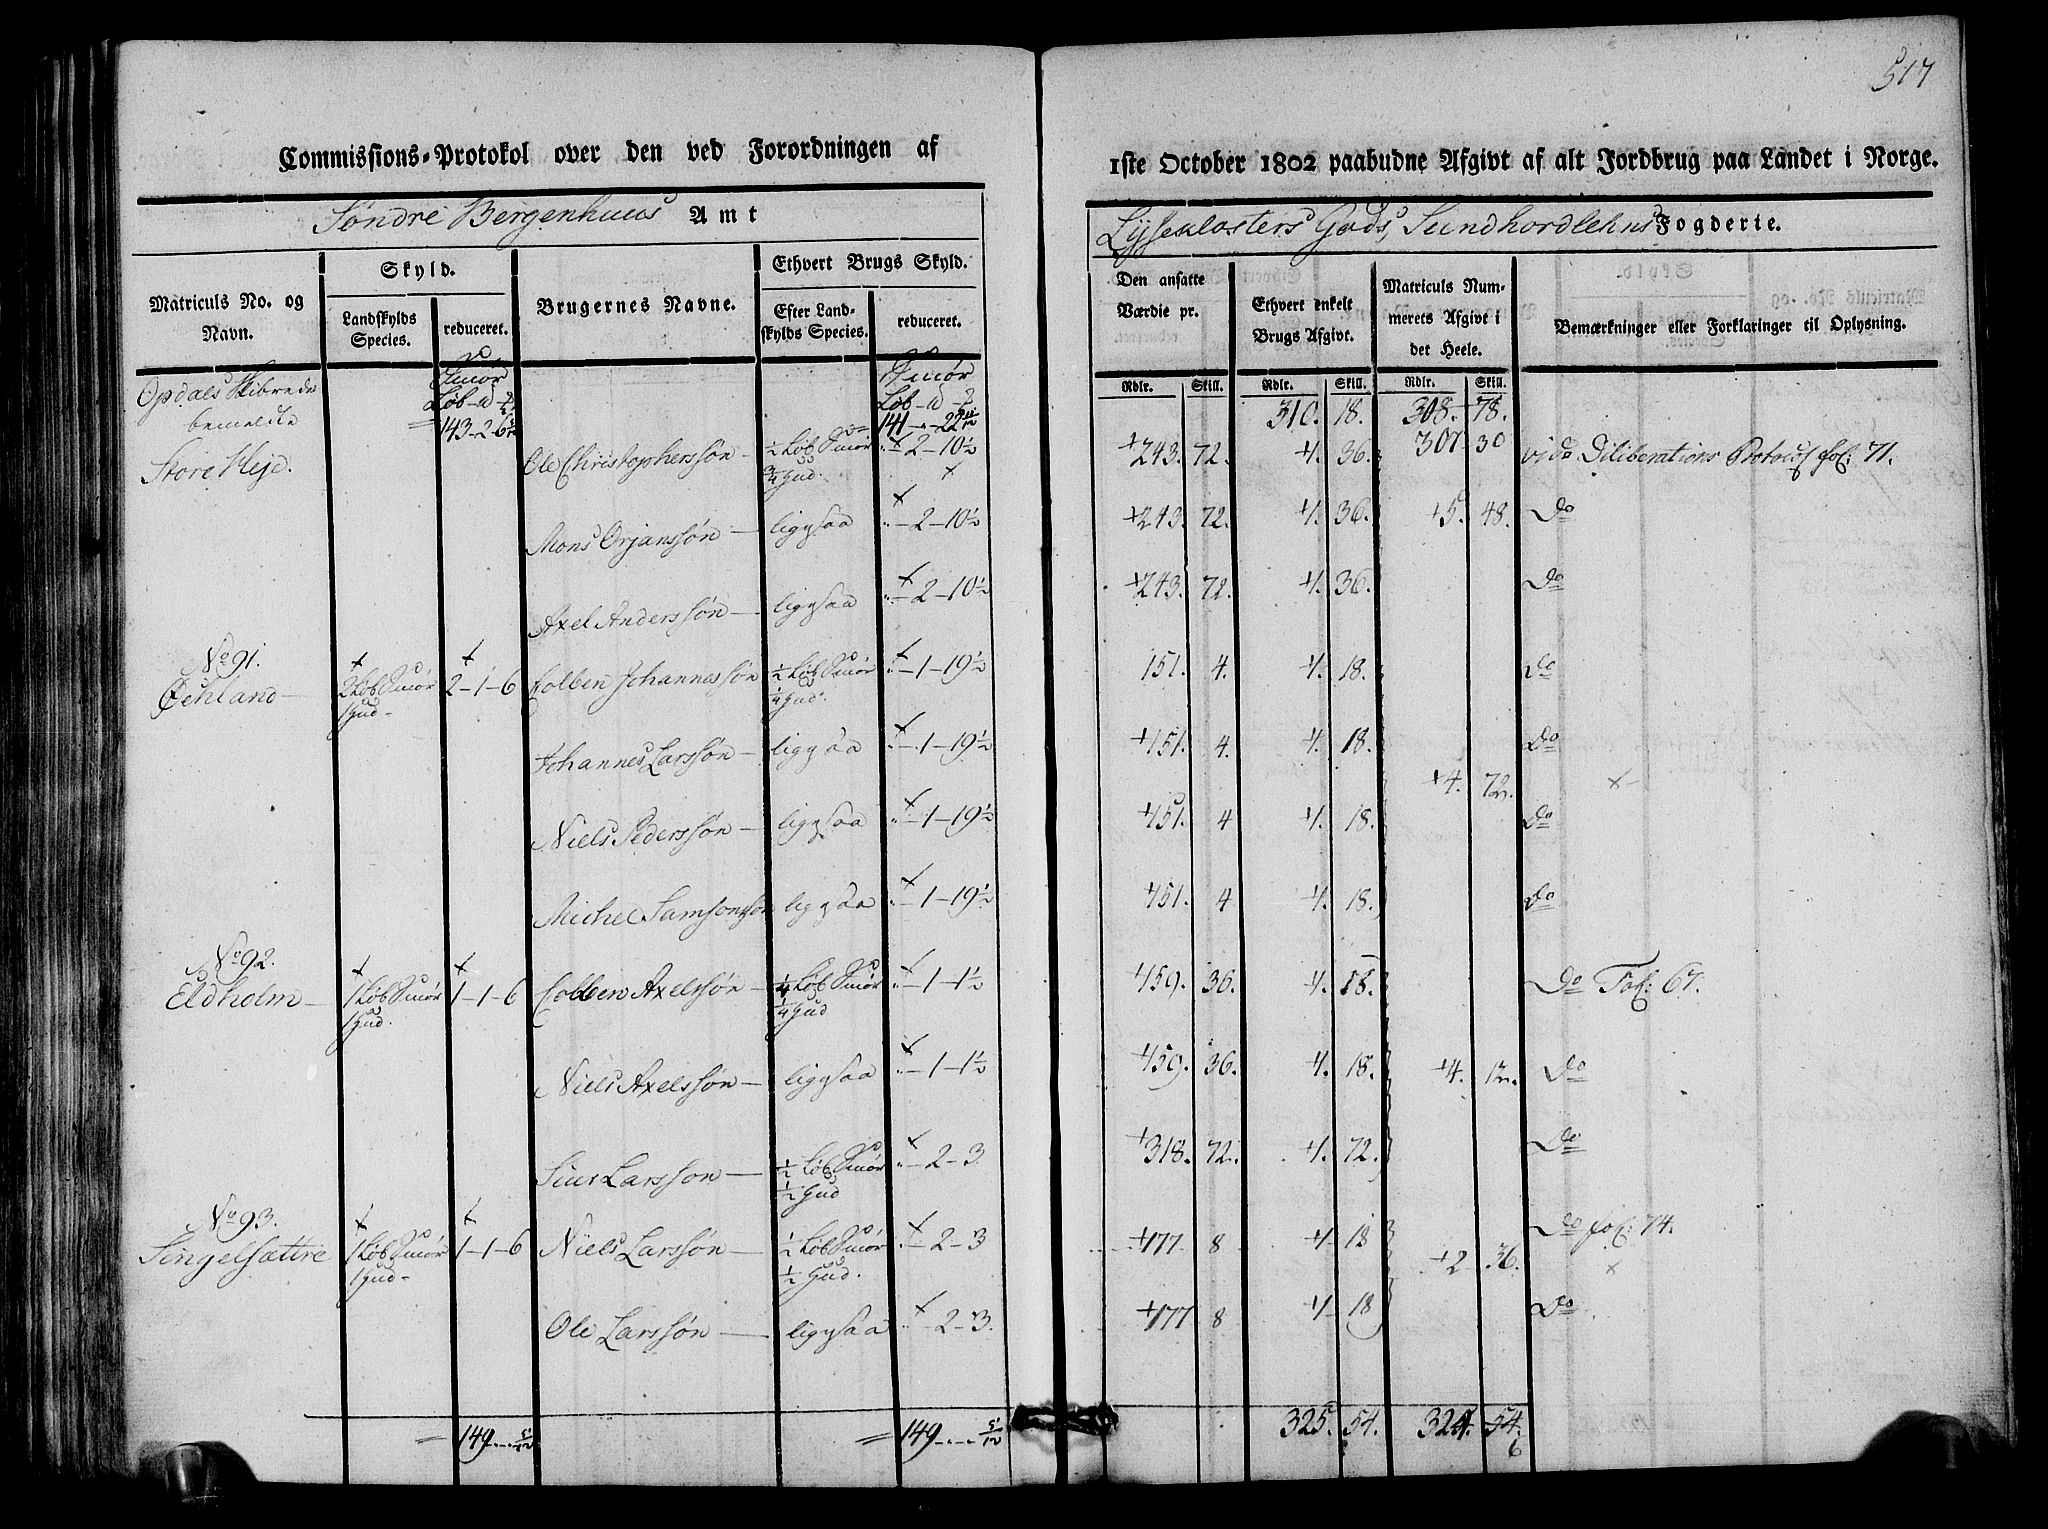 517
Commissions-Protokol over den ved Forordningen af 1ste October 1802 paabudne Afgivt af alt Jordbrug paa Landet i Norge.
Søndre Bergenhuus Amt
Lyseklosters Gods, Sundhordlehns Fogderie.
Matriculs No. og Navn.
Skyld.
Landskylds Species.
reduceret.
Brugernes Navne.
Ethvert Brugs Skyld.
Efter Landskylds Species.
reduceret.
Den ansatte Værdie pr.
Ethvert enkelt Brugs Afgivt.
Matriculs Nummerets Afgivt i det Heele.
Bemærkninger eller Forklaringer til Oplysning.
Rdlr. Skill. Rdlr. Skill. Rdlr. Skill.
Opdals Skibrede
bemeldte
Smør
Løb
143-2-6
Smør
Løb
141
310. 18. 308. 78.
307 30
Store Heje. Ole Christophersøn — ½ Løb Smør ¾ Hud. 2-10½ 243. 72. 1. 36. vide Deliberations Protocol fol: 71.
Mons Ørjanssøn — ligesaa 2-10½ 243. 72. 1. 36. 5. 48. Do
Axel Anderssøn — ligesaa 2-10½ 243. 72. 1. 36. Do
No 91.
Øehland — 2 Løb Smør 1 Hud 2-1-6 Colben Johannessøn ½ Løb Smør ¼ Hud. 1-19½ 151. 4. 1. 18. Do
Johannes Larssøn — ligesaa 1-19½ 151. 4. 1. 18. Do
4. 72.
Niels Pederssøn — ligesaa 1-19½ 151. 4 1. 18. Do
Michel Samsonssøn ligesaa 1-19½ 151. 4 1. 18. Do
No 92.
Eldholm — 1 Løb Smør 1 Hud. 1-1-6 Colben Axelssøn — ¼ Løb Smør ¼ Hud 1-1½ 159. 36. 1. 18. Do Fol: 67.
Niels Axelssøn — ligesaa 1-1½ 159. 36. 1. 18. 4. 12. Do
Siur Larsson — ½ Løb Smør ½ Hud 2-3 318. 72. 1. 72. Do
No 93.
Singelsættre 1 Løb Smør 1 Hud 1-1-6 Niels Larssøn — ½ Løb Smør ½ Hud. 2-3 177 8 1 18 Do fol: 74.
2 36.
Ole Larssøn — ligesaa 2-3. 177 8 1 18 Do
149 5/12 149 5/12 325. 54. 324. 54.
6